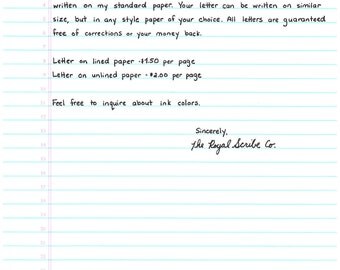 written on my standard paper. Your letter can be written on similar
size, but in any style paper of your choice. All letters are guaranteed
free of corrections or your money back.
Letter on lined paper - $1.50 per page
Letter on unlined paper - $2.00 per page
Feel free to inquire about ink colors.
Sincerely,
The Royal Scribe Co.